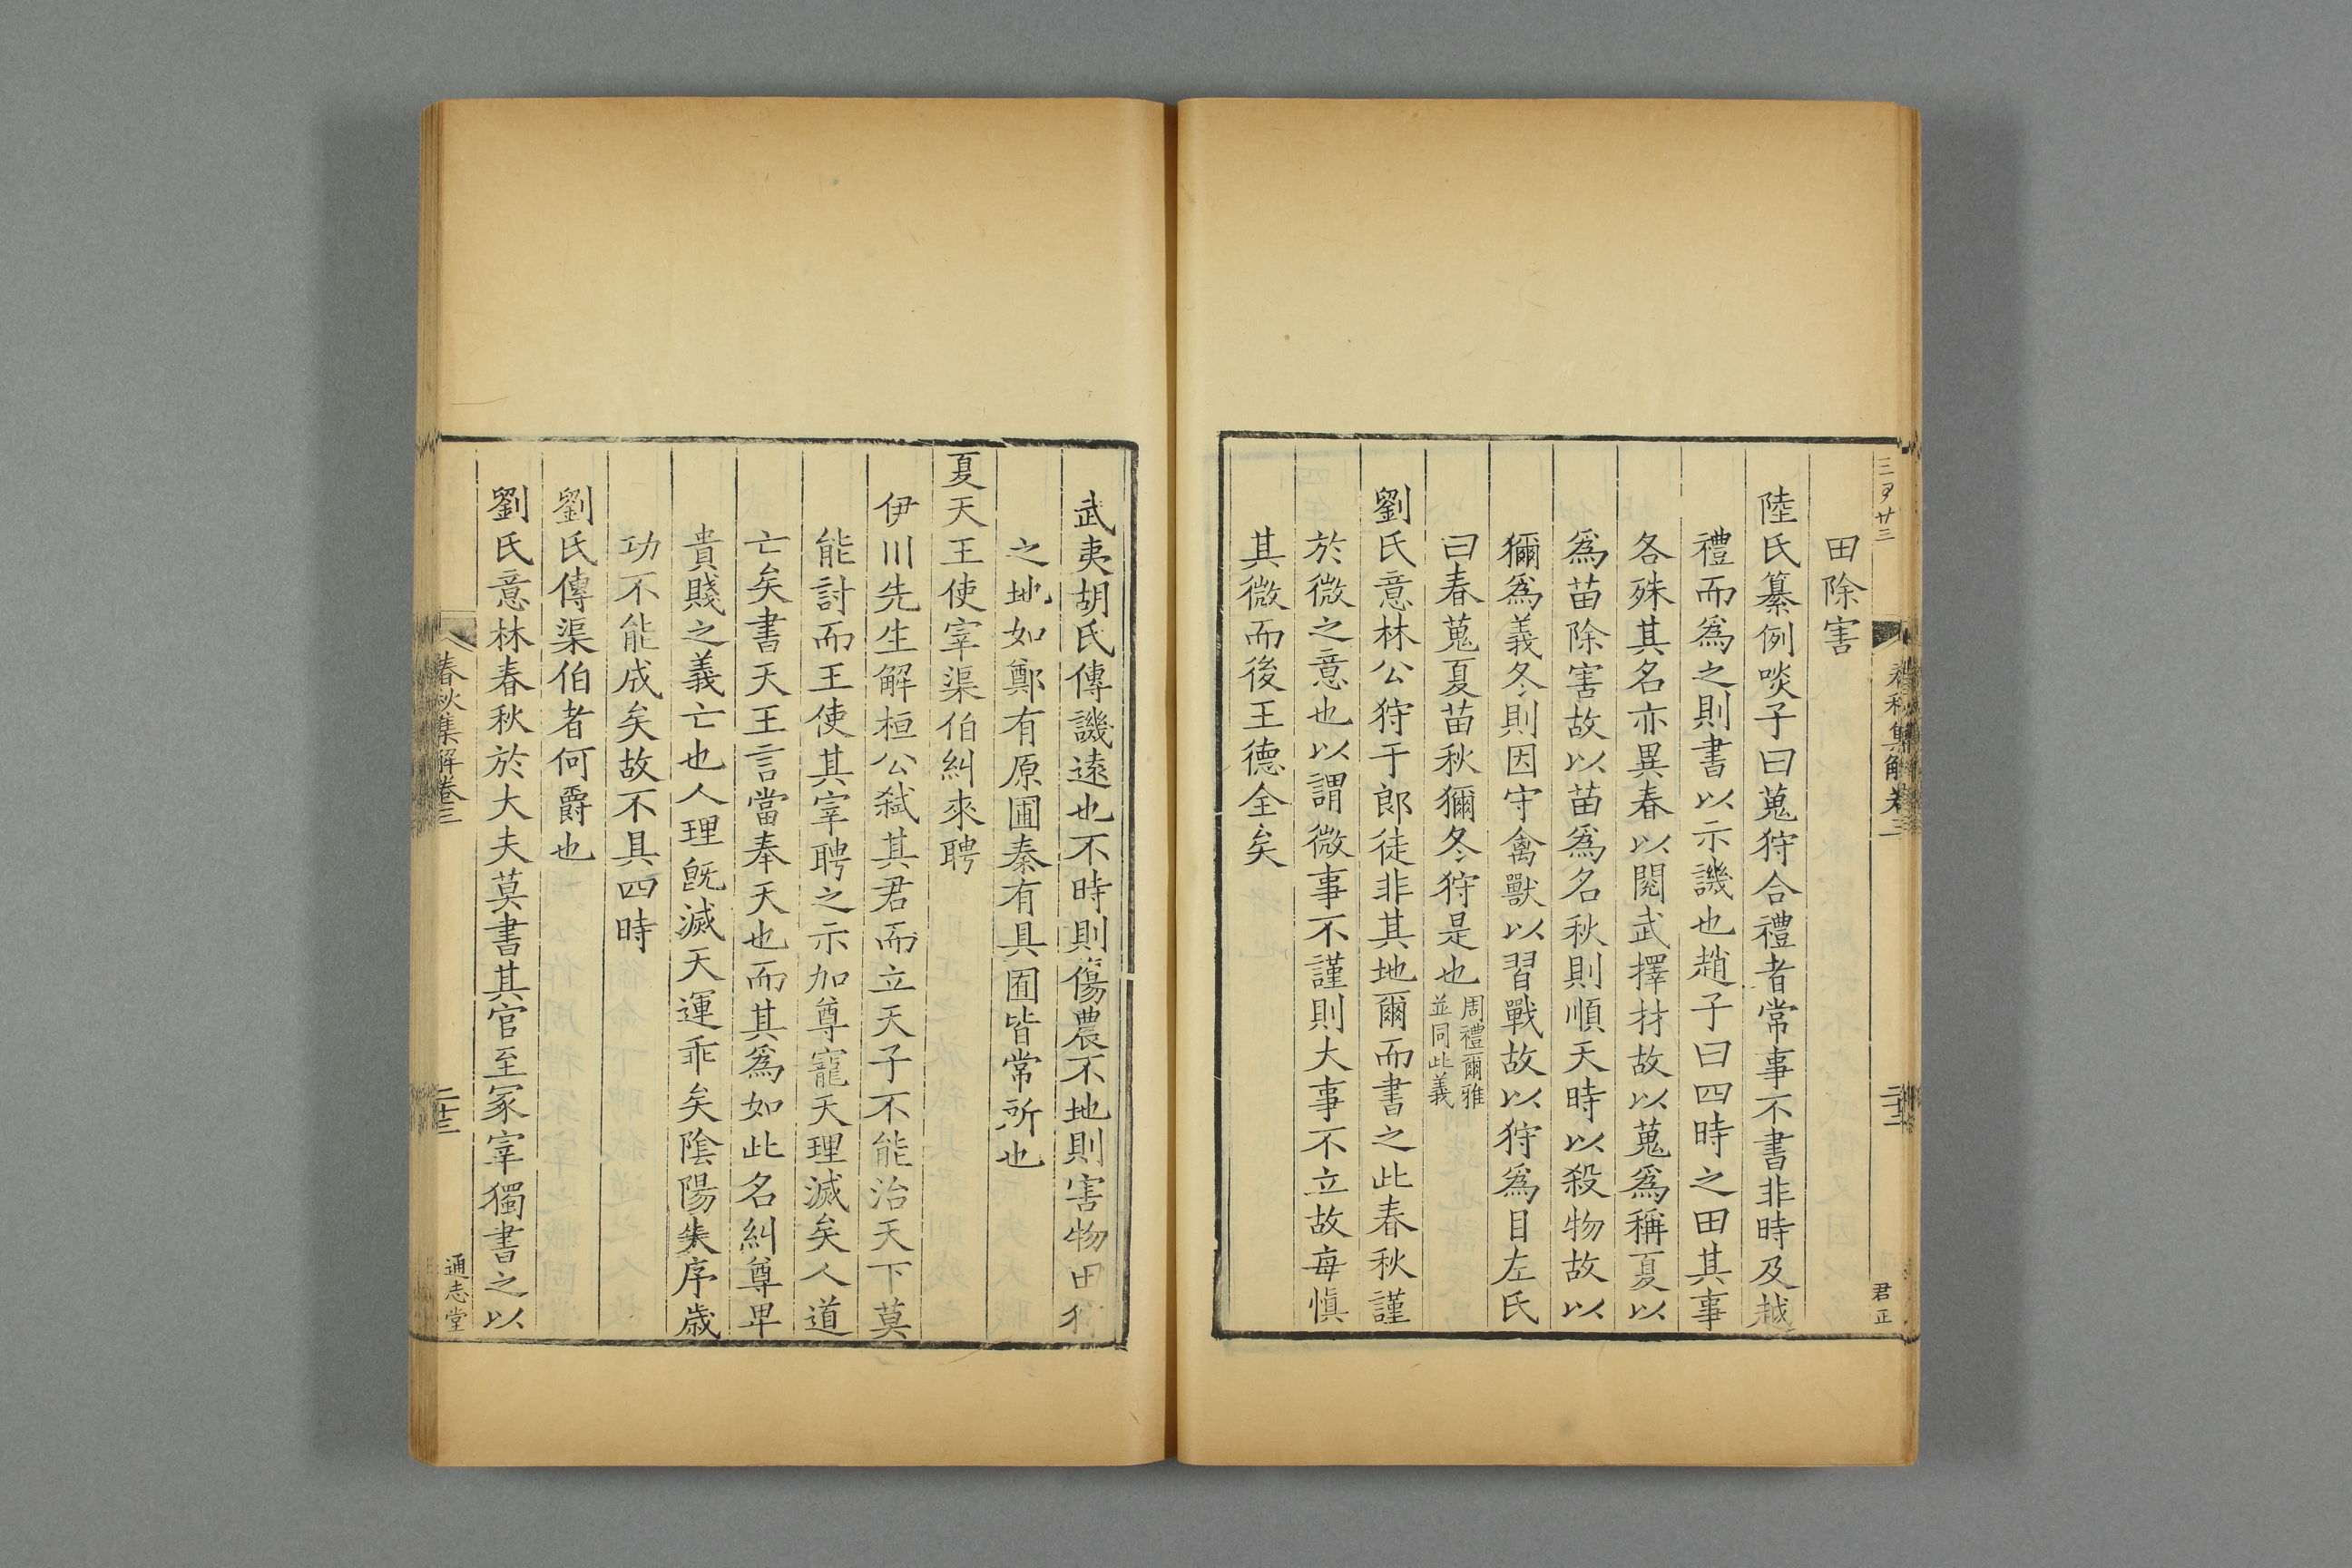 田除害
陸氏纂例啖子曰蒐狩合禮者常事不書非時及越
禮而爲之則書以示譏也趙子曰四時之田其事
各殊其名亦異春以閱武擇材故以蒐爲稱夏以
爲苗除害故以苗爲名秋則順天時以殺物故以
獮爲義冬則因守禽獸以習戰故以狩爲目左氏
曰春蒐夏苗秋獮冬狩是也周禮爾雅並同此義
劉氏意林公狩于郎徒非其地爾而書之此春秋謹
於微之意也以謂微事不謹則大事不立故每慎
其微而後王德全矣
武夷胡氏傳譏遠也不時則傷農不地則害物田狩
之地如鄭有原圃秦有具囿皆常所也
夏天王使宰渠伯糾來聘
伊川先生解桓公弑其君而立天子不能治天下莫
能討而王使其宰聘之示加尊寵天理滅矣人道
亡矣書天王言當奉天也而其爲如此名糾尊卑
貴賤之義亡也人理旣滅天運乖矣隂陽失序歲
功不能成矣故不具四時
劉氏傳渠伯者何爵也
劉氏意林春秋於大夫莫書其官至冢宰獨書之以
春秋集解卷三
通志堂
君正